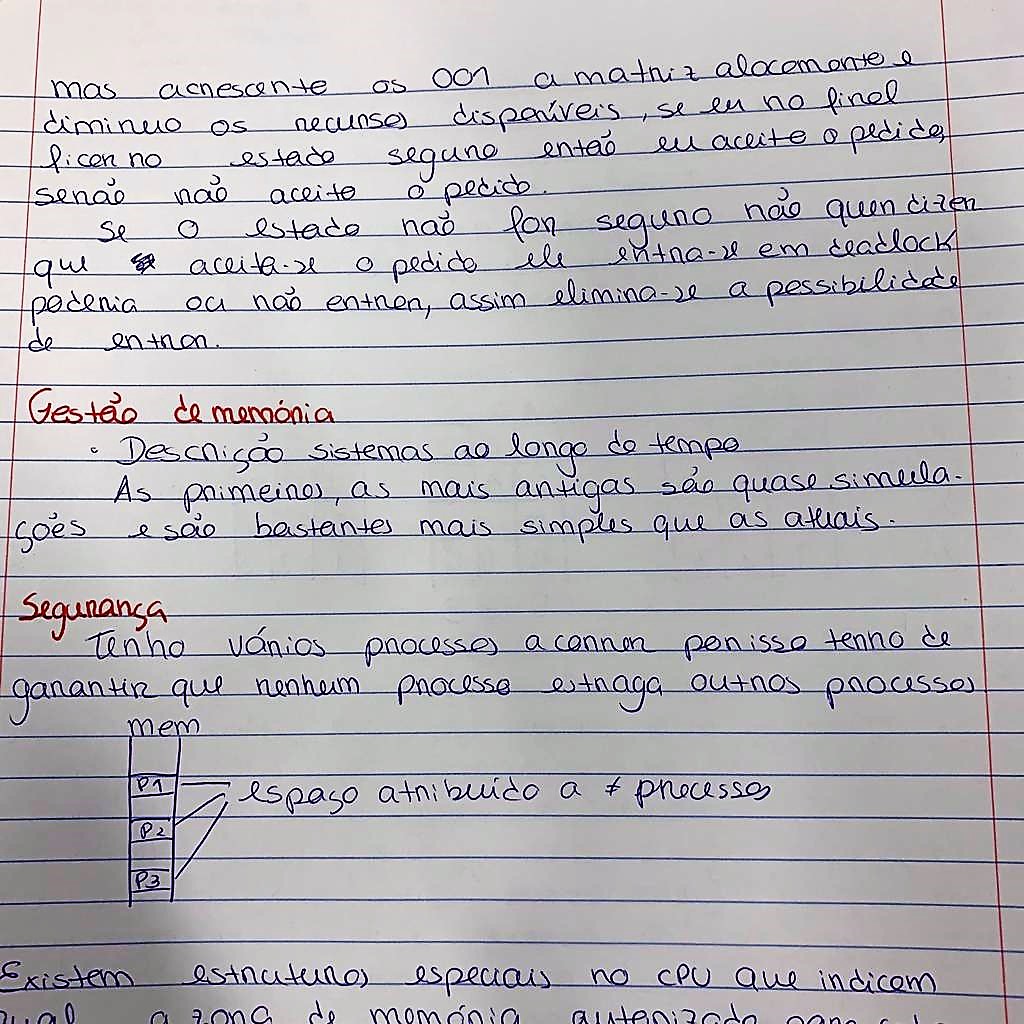 mas acrescento os 001 a matriz alocamento e
diminuo os recursos disponíveis, se eu no final
ficar no estado seguro então eu aceito o pedido,
senão não aceito o pedido.
Se o estado não for seguro não quer dizer
que aceita-se o pedido ele entra-se em deadlock
poderia ou não entrar, assim elimina-se a possibilidade
de entrar.
Gestão de memória
• Descrição sistemas ao longo do tempo
As primeiros, as mais antigas são quase simula-
ções e são bastantes mais simples que as atuais.
Segurança
Tenho vários processos a correr por isso tenho de
garantir que nenhum processo estraga outros processos
mem
P1
espaço atribuído a ≠ processos
P2
P3
Existem estruturas especiais no CPU que indicam
a zona de memória autorizada para